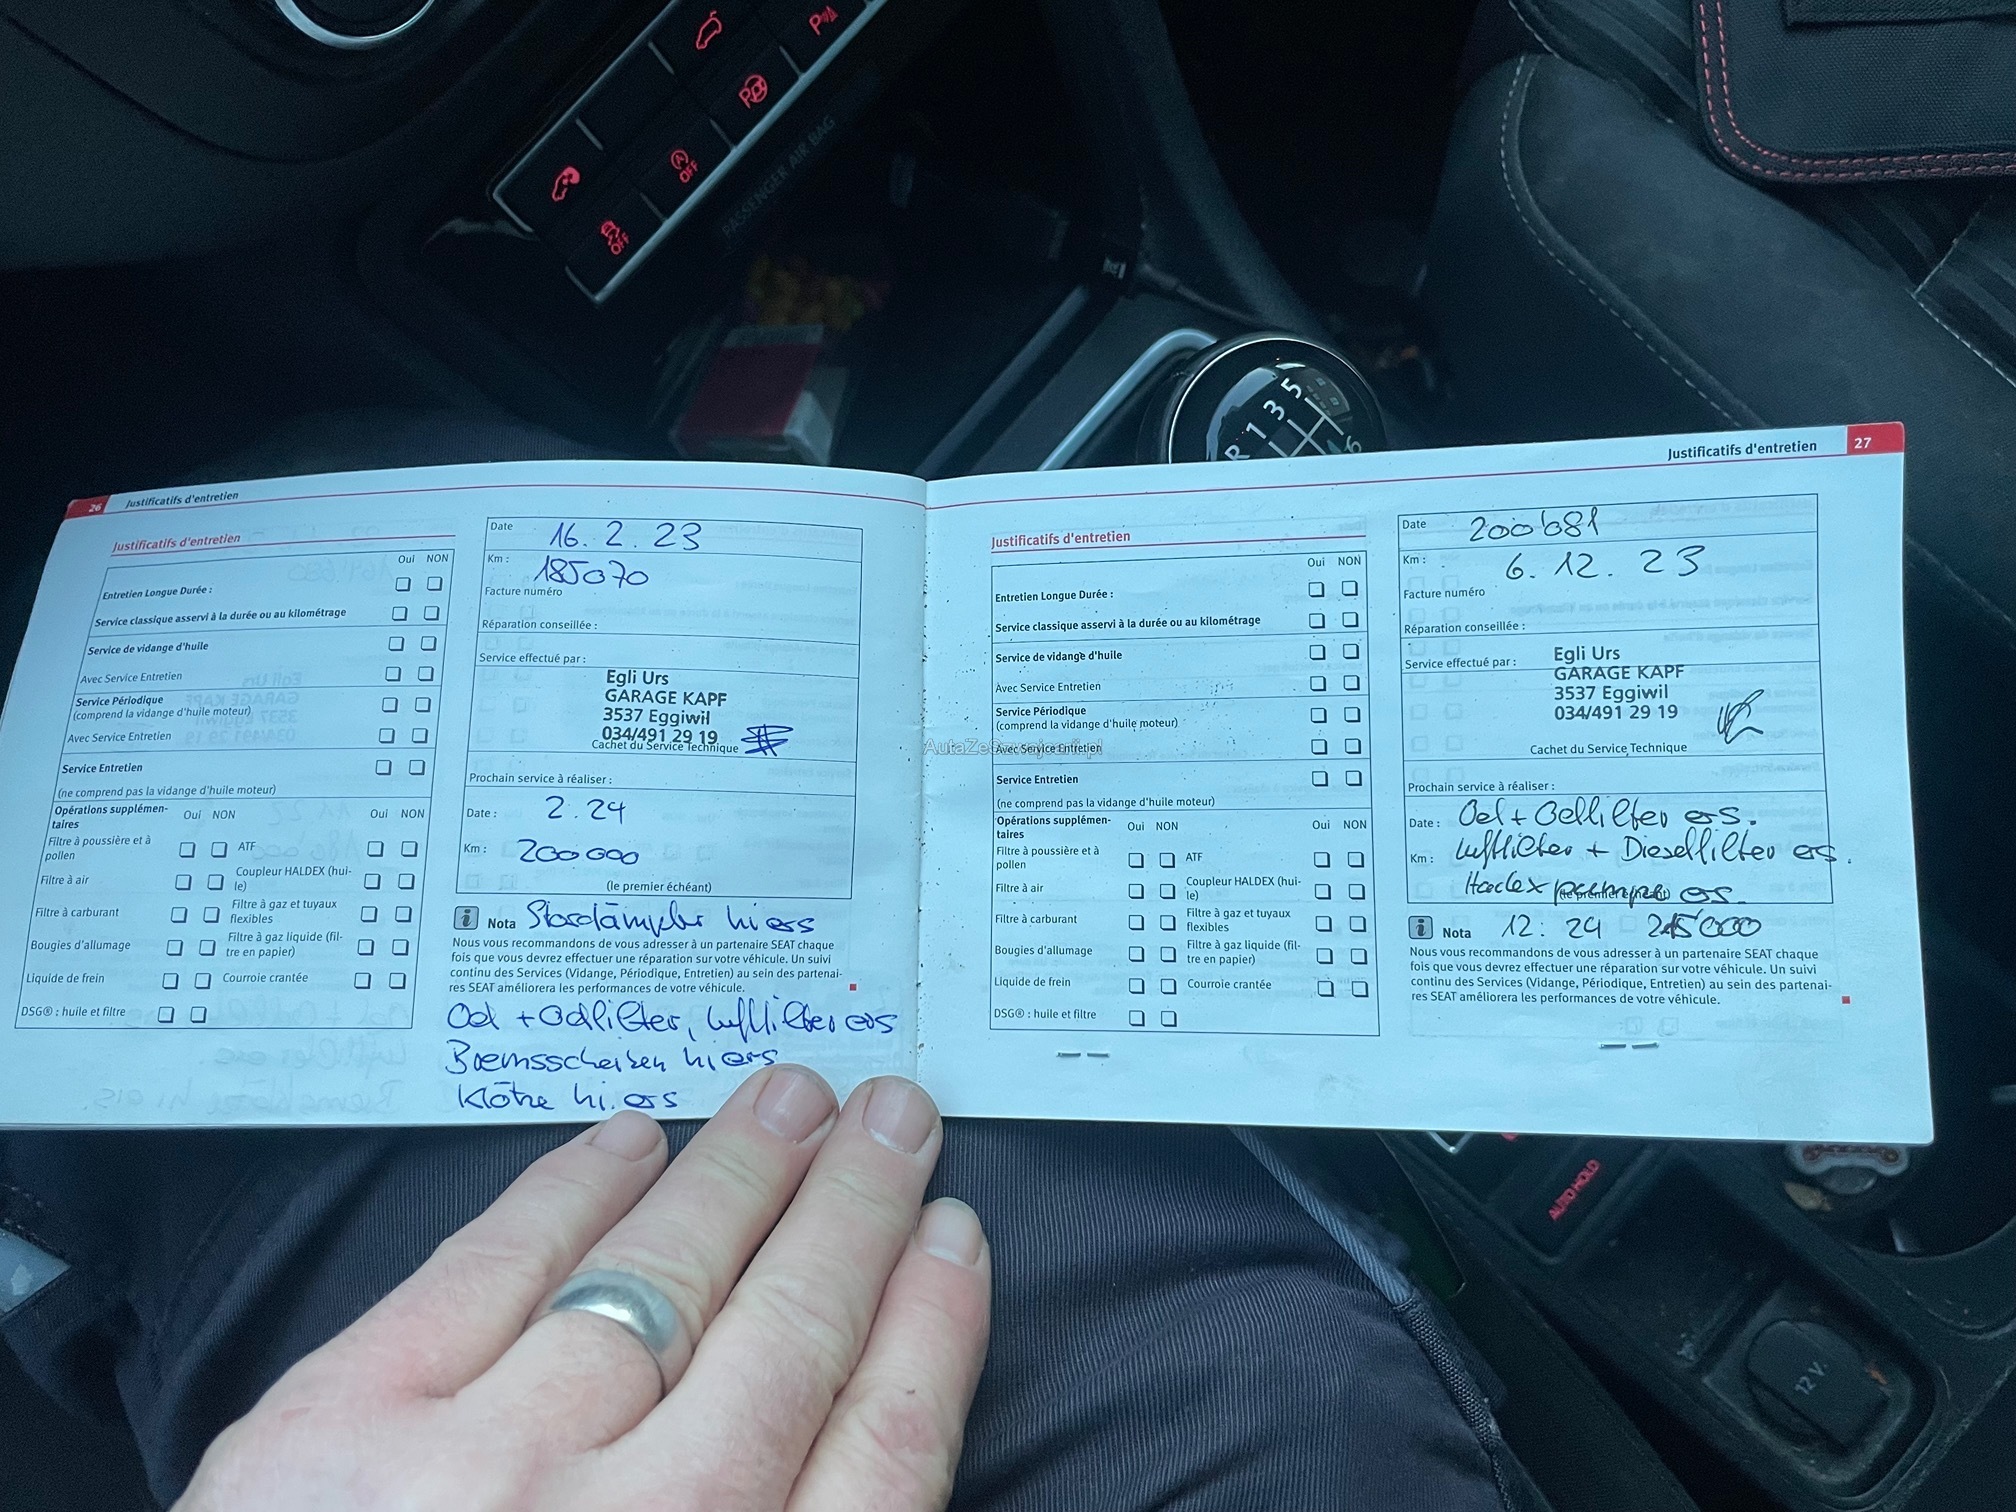 PASSENGER AIR BAG
OFF
OFF
P
R 1 3 5
6
26 Justificatifs d'entretien
Justificatifs d'entretien
Oui NON
Entretien Longue Durée :
Service classique asservi à la durée ou au kilométrage
Service de vidange d'huile
Avec Service Entretien
Service Périodique
(comprend la vidange d'huile moteur)
Avec Service Entretien
Service Entretien
(ne comprend pas la vidange d'huile moteur)
Opérations supplémen-
taires
Oui NON
Oui NON
Filtre à poussière et à
pollen
ATF
Filtre à air
Coupleur HALDEX (hui-
le)
Filtre à carburant
Filtre à gaz et tuyaux
flexibles
Bougies d'allumage
Filtre à gaz liquide (fil-
tre en papier)
Liquide de frein
Courroie crantée
DSG® : huile et filtre
Date 16. 2. 23
Km : 185070
Facture numéro
Réparation conseillée :
Service effectué par :
Egli Urs
GARAGE KAPF
3537 Eggiwil
034/491 29 19
Cachet du Service Technique
Prochain service à réaliser :
Date : 2. 24
Km : 200000
(le premier échéant)
Nota Stossdämpfer hi ers
Nous vous recommandons de vous adresser à un partenaire SEAT chaque
fois que vous devrez effectuer une réparation sur votre véhicule. Un suivi
continu des Services (Vidange, Périodique, Entretien) au sein des partenai-
res SEAT améliorera les performances de votre véhicule.
Oel + Oelfilter, Luftfilter ers
Bremsscheiben hi ers
Klötze hi. ers
Justificatifs d'entretien 27
Justificatifs d'entretien
Oui NON
Entretien Longue Durée :
Service classique asservi à la durée ou au kilométrage
Service de vidange d'huile
Avec Service Entretien
Service Périodique
(comprend la vidange d'huile moteur)
Avec Service Entretien
Service Entretien
(ne comprend pas la vidange d'huile moteur)
Opérations supplémen-
taires
Oui NON
Oui NON
Filtre à poussière et à
pollen
ATF
Filtre à air
Coupleur HALDEX (hui-
le)
Filtre à carburant
Filtre à gaz et tuyaux
flexibles
Bougies d'allumage
Filtre à gaz liquide (fil-
tre en papier)
Liquide de frein
Courroie crantée
DSG® : huile et filtre
Date 200'681
Km : 6. 12. 23
Facture numéro
Réparation conseillée :
Service effectué par :
Egli Urs
GARAGE KAPF
3537 Eggiwil
034/491 29 19
Cachet du Service Technique
Prochain service à réaliser :
Date : Oel + Oelfilter ers.
Km : Luftfilter + Dieselfilter ers.
Haldex pumpe ers.
(le premier échéant)
Nota 12. 24 215'000
Nous vous recommandons de vous adresser à un partenaire SEAT chaque
fois que vous devrez effectuer une réparation sur votre véhicule. Un suivi
continu des Services (Vidange, Périodique, Entretien) au sein des partenai-
res SEAT améliorera les performances de votre véhicule.
AUTO HOLD
12 V